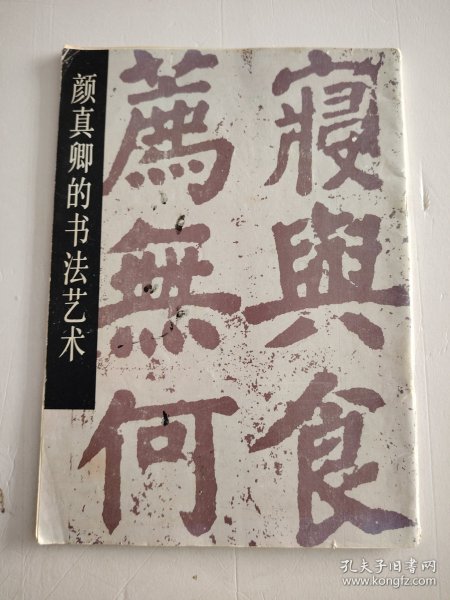 颜真卿的书法艺术
寝與食
薦無何
孔夫子旧书网
www.kongfz.com